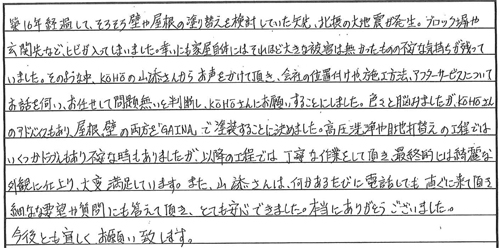 築16年経過して、そろそろ壁や屋根の塗り替えを検討していた矢先、北摂の大地震が発生。ブロック塀や
玄関先など、ヒビが入ってしまいました。幸いにも家屋自体にはそれほど大きな被害は無かったものの不安な気持ちが残って
いました。そのような中、KOHOの山添さんからお声をかけて頂き、会社の位置付けや、施工方法、アフターサービスについて
お話を伺い、お任せして問題無いと判断し、KOHOさんにお願いすることにしました。色々と悩みましたが、KOHOさん
のアドバイスもあり、屋根、壁の両方を「GAINA」で塗装することに決めました。高圧洗浄や目地打替えの工程では
いくつかトラブルもあり不安な時もありましたが、以降の工程では丁寧な作業をして頂き、最終的には綺麗な
外観に仕上り、大変満足しています。また、山添さんは、何かあるたびに電話しても直ぐに来て頂き
細かな要望や質問にも答えて頂き、とても安心できました。本当にありがとうございました。
今後とも宜しくお願い致します。